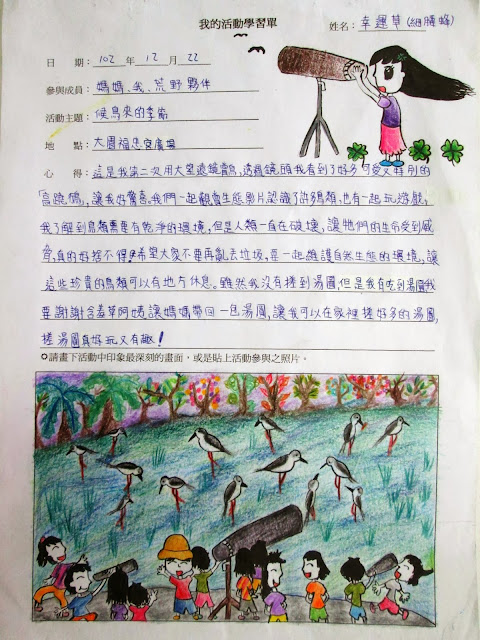 我的活動學習單
姓名：幸運草(細腰蜂)
日　期：102 年 12 月 22
參與成員：媽媽、我、荒野夥伴
活動主題：候鳥來的季節
地　點：大園福忠宮廣場
心　得：這是我第二次用大望遠鏡賞鳥，透過鏡頭我看到了好多可愛又特別的
「高蹺鴴」，讓我好驚喜。我們一起觀賞生態影片認識了許多鳥類，也有一起玩遊戲，
我了解到鳥類需要有乾淨的環境，但是人類一直在破壞，讓牠們的生命受到威
脅，真的好捨不得！希望大家不要再亂丟垃圾，要一起維護自然生態的環境，讓
這些珍貴的鳥類可以有地方休息。雖然我沒有搓到湯圓，但是我有吃到湯圓，我
要謝謝含羞草阿姨讓媽媽帶回一包湯圓，讓我可以在家裡搓好多的湯圓，
搓湯圓真好玩又有趣！
○請畫下活動中印象最深刻的畫面，或是貼上活動參與之照片。